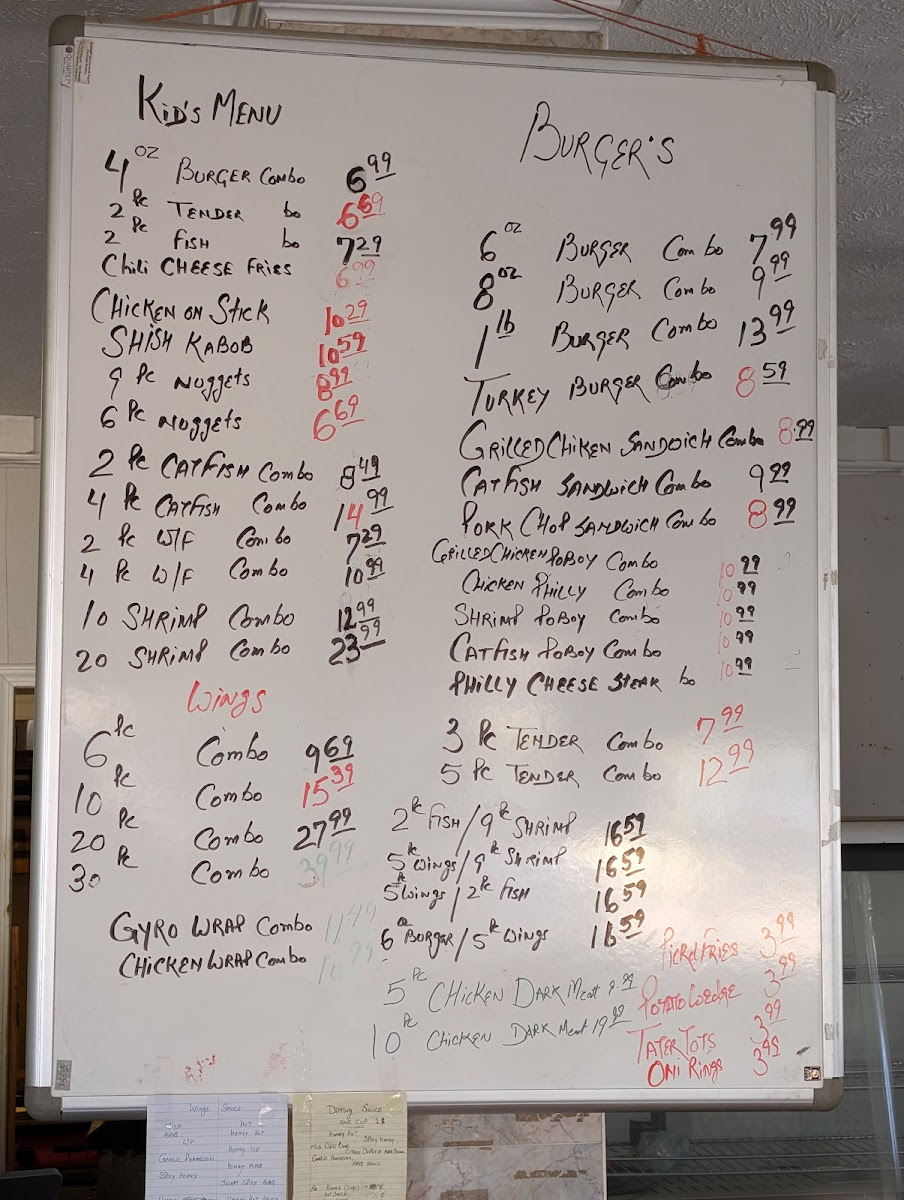 KiD'S MENU
4 OZ BURGER Combo 6.99
2 Pc TENDER bo 6.69
2 Pc FISH bo 7.29
Chili CHEESE FRIES 6.99
CHICKEN ON STICK 10.29
SHISH KABOB 10.59
9 Pc NUGGETS 8.99
6 Pc NUGGETS 6.69
2 Pc CATFISH Combo 8.49
4 Pc CATFISH Combo 14.99
2 Pc W/F Combo 7.29
4 Pc W/F Combo 10.99
10 SHRIMP Combo 12.99
20 SHRIMP Combo 23.99
WINGS
6 Pc Combo 9.69
10 Pc Combo 15.39
20 Pc Combo 27.99
30 Pc Combo 39.99
GYRO WRAP Combo 11.99
CHICKEN WRAP Combo 10.99
BURGER'S
6 OZ BURGER Combo 7.99
8 OZ BURGER Combo 9.99
1 lb BURGER Combo 13.99
TURKEY BURGER Combo 8.59
GRILLED CHIKEN SANDWICH Combo 8.99
CATFISH SANDWICH Combo 9.99
PORK CHOP SANDWICH Combo 8.99
GRILLED CHICKEN POBOY Combo 10.99
CHICKEN PHILLY Combo 10.99
SHRIMP POBOY Combo 10.99
CATFISH POBOY Combo 10.99
PHILLY CHEESE STEAK bo 10.99
3 Pc TENDER Combo 7.99
5 Pc TENDER Combo 12.99
2 Pc FISH / 9 Pc SHRIMP 16.59
5 Pc WINGS / 9 Pc SHRIMP 16.59
5 Pc WINGS / 2 Pc FISH 16.59
6 oz BURGER / 5 Pc WINGS 16.59
5 Pc CHICKEN DARK Meat 9.99
10 Pc CHICKEN DARK Meat 19.99
PICKEL FRIES 3.99
POTATO WEDGE 3.99
TATER TOTS 3.99
ONI RINGS 3.99
Wings Sauce
HOT
BBQ HONEY HOT
L/P HONEY L/P
GARLIC PARMESAN HONEY BBQ
SPICY HONEY SWEET SPICY BBQ
DIPPING SAUCE
ONE CUP 1$
HONEY HOT,
SPICY HONEY,
GARLIC PARMESAN,
BBQ SAUCE
Ranch (cup)
HOT SAUCE